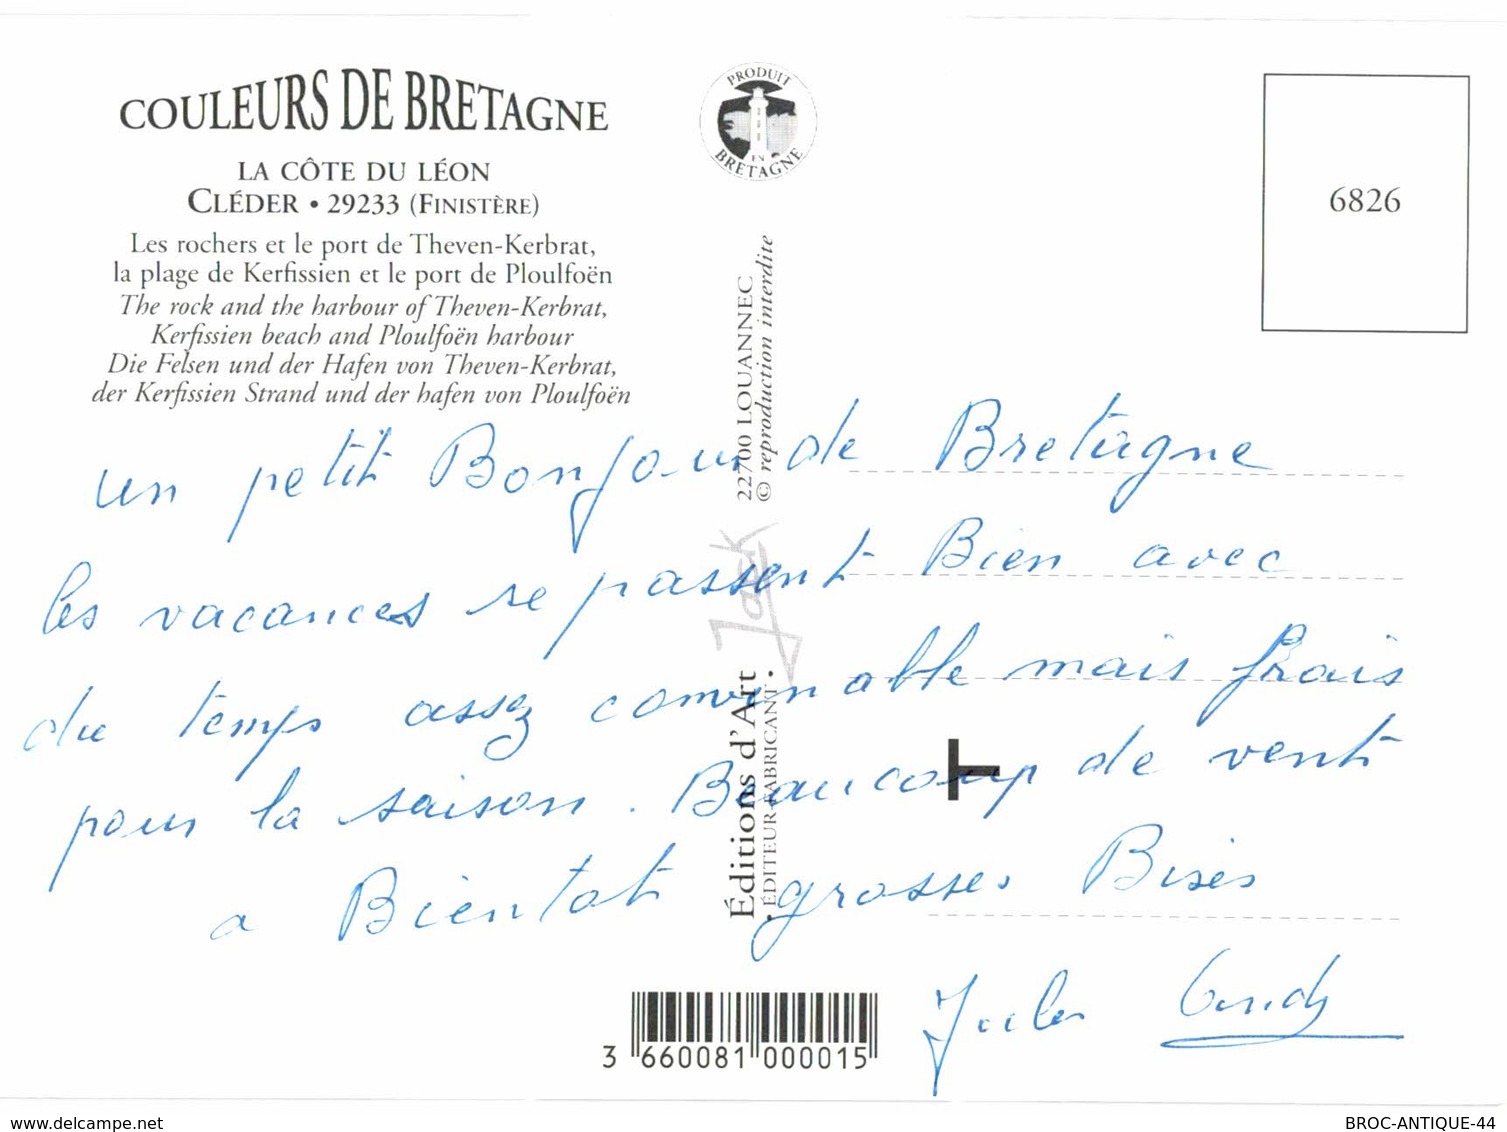 COULEURS DE BRETAGNE
LA CÔTE DU LÉON
CLÉDER • 29233 (FINISTÈRE)
Les rochers et le port de Theven-Kerbrat,
la plage de Kerfissien et le port de Ploulfoën
The rock and the harbour of Theven-Kerbrat,
Kerfissien beach and Ploulfoën harbour
Die Felsen und der Hafen von Theven-Kerbrat,
der Kerfissien Strand und der hafen von Ploulfoën
PRODUIT
EN
BRETAGNE
6826
22700 LOUANNEC
© reproduction interdite
Jack
Éditions d'Art
• ÉDITEUR-FABRICANT •
un petit Bonjour de Bretagne
les vacances se passent Bien avec
du temps assez convenable mais frais
pour la saison. Beaucoup de vent
a Bientot grosses Bises
Jules
3 660081 000015
delcampe.net
BROC-ANTIQUE-44